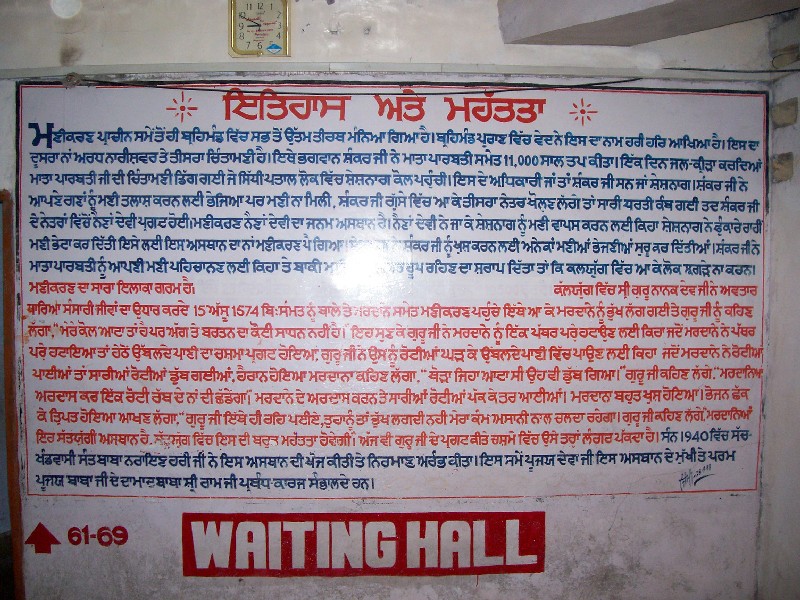 ਇਤਿਹਾਸ ਅਤੇ ਮਹੱਤਤਾ
ਮਣੀਕਰਣ ਪ੍ਰਾਚੀਨ ਸਮੇਂ ਤੋਂ ਹੀ ਬ੍ਰਹਿਮੰਡ ਵਿੱਚ ਸਭ ਤੋਂ ਉੱਤਮ ਤੀਰਥ ਮੰਨਿਆ ਗਿਆ ਹੈ। ਬ੍ਰਹਿਮੰਡ ਪੁਰਾਣ ਵਿੱਚ ਵੇਦ ਨੇ ਇਸ ਦਾ ਨਾਮ ਹਰੀ ਹਰਿ ਆਖਿਆ ਹੈ। ਇਸ ਦਾ
ਦੂਸਰਾ ਨਾਂ ਅਰਧ ਨਾਰੀਸ਼ਵਰ ਤੇ ਤੀਸਰਾ ਚਿੰਤਾਮਣੀ ਹੈ। ਇਥੇ ਭਗਵਾਨ ਸ਼ੰਕਰ ਜੀ ਨੇ ਮਾਤਾ ਪਾਰਬਤੀ ਸਮੇਤ 11,000 ਸਾਲ ਤਪ ਕੀਤਾ। ਇੱਕ ਦਿਨ ਜਲ-ਕ੍ਰੀੜਾ ਕਰਦਿਆਂ
ਮਾਤਾ ਪਾਰਬਤੀ ਜੀ ਦੀ ਚਿੰਤਾਮਣੀ ਡਿੱਗ ਗਈ ਜੋ ਸਿੱਧੀ ਪਤਾਲ ਲੋਕ ਵਿੱਚ ਸ਼ੇਸ਼ਨਾਗ ਕੋਲ ਪਹੁੰਚੀ। ਇਸ ਦੇ ਅਧਿਕਾਰੀ ਜਾਂ ਤਾਂ ਸ਼ੰਕਰ ਜੀ ਸਨ ਜਾਂ ਸ਼ੇਸ਼ਨਾਗ। ਸ਼ੰਕਰ ਜੀ ਨੇ
ਆਪਣੇ ਗਣਾਂ ਨੂੰ ਮਣੀ ਤਲਾਸ਼ ਕਰਨ ਲਈ ਭੇਜਿਆ ਪਰ ਮਣੀ ਨਾ ਮਿਲੀ, ਸ਼ੰਕਰ ਜੀ ਗੁੱਸੇ ਵਿੱਚ ਆ ਕੇ ਤੀਸਰਾ ਨੇਤਰ ਖੋਲ੍ਹਣ ਲੱਗੇ। ਤਾਂ ਸਾਰੀ ਧਰਤੀ ਕੰਬ ਗਈ ਤਦ ਸ਼ੰਕਰ ਜੀ
ਦੇ ਨੇਤਰਾਂ ਵਿੱਚੋਂ ਨੈਣਾਂ ਦੇਵੀ ਪ੍ਰਗਟ ਹੋਈ। ਮਣੀਕਰਣ ਨੈਣਾਂ ਦੇਵੀ ਦਾ ਜਨਮ ਅਸਥਾਨ ਹੈ। ਨੈਣਾਂ ਦੇਵੀ ਨੇ ਜਾ ਕੇ ਸ਼ੇਸ਼ਨਾਗ ਨੂੰ ਮਣੀ ਵਾਪਸ ਕਰਨ ਲਈ ਕਿਹਾ ਸ਼ੇਸ਼ਨਾਗ ਨੇ ਫੁੰਕਾਰੇ ਰਾਹੀਂ
ਮਣੀ ਭੇਟਾ ਕਰ ਦਿੱਤੀ ਇਸੇ ਲਈ ਇਸ ਅਸਥਾਨ ਦਾ ਨਾਂ ਮਣੀਕਰਣ ਪੈ ਗਿਆ। ਨੇ ਸ਼ੰਕਰ ਜੀ ਨੂੰ ਖੁਸ਼ ਕਰਨ ਲਈ ਅਨੇਕਾਂ ਮਣੀਆਂ ਭੇਜਣੀਆਂ ਸ਼ੁਰੂ ਕਰ ਦਿੱਤੀਆਂ। ਸ਼ੰਕਰ ਜੀ ਨੇ
ਮਾਤਾ ਪਾਰਬਤੀ ਨੂੰ ਆਪਣੀ ਮਣੀ ਪਹਿਚਾਨਣ ਲਈ ਕਿਹਾ ਤੇ ਬਾਕੀ ਰੂਪ ਰਹਿਣ ਦਾ ਸ਼ਰਾਪ ਦਿੱਤਾ ਤਾਂ ਕਿ ਕਲਯੁੱਗ ਵਿੱਚ ਆ ਕੇ ਲੋਕ ਝਗੜੇ ਨਾ ਕਰਨ।
ਮਣੀਕਰਣ ਦਾ ਸਾਰਾ ਇਲਾਕਾ ਗਰਮ ਹੈ। ਕਲਯੁੱਗ ਵਿੱਚ ਸ੍ਰੀ ਗੁਰੂ ਨਾਨਕ ਦੇਵ ਜੀ ਨੇ ਅਵਤਾਰ
ਧਾਰਿਆ ਸੰਸਾਰੀ ਜੀਵਾਂ ਦਾ ਉਧਾਰ ਕਰਦੇ 15 ਅੱਸੂ 1574 ਬਿ: ਸੰਮਤ ਨੂੰ ਬਾਲੇ ਤੇ ਮਰਦਾਨੇ ਸਮੇਤ ਮਣੀਕਰਣ ਪਹੁੰਚੇ ਇਥੇ ਆ ਕੇ ਮਰਦਾਨੇ ਨੂੰ ਭੁੱਖ ਲੱਗ ਗਈ ਤੇ ਗੁਰੂ ਜੀ ਨੂੰ ਕਹਿਣ
ਲੱਗਾ, "ਮੇਰੇ ਕੋਲ ਆਟਾ ਤਾਂ ਹੈ ਪਰ ਅੱਗ ਤੇ ਬਰਤਨ ਦਾ ਕੋਈ ਸਾਧਨ ਨਹੀਂ ਹੈ।" ਇਹ ਸੁਣ ਕੇ ਗੁਰੂ ਜੀ ਨੇ ਮਰਦਾਨੇ ਨੂੰ ਇੱਕ ਪੱਥਰ ਪਰ੍ਹੇ ਹਟਾਉਣ ਲਈ ਕਿਹਾ ਜਦੋਂ ਮਰਦਾਨੇ ਨੇ ਪੱਥਰ
ਪਰ੍ਹੇ ਹਟਾਇਆ ਤਾਂ ਹੇਠੋਂ ਉੱਬਲਦੇ ਪਾਣੀ ਦਾ ਚਸ਼ਮਾ ਪ੍ਰਗਟ ਹੋਇਆ, ਗੁਰੂ ਜੀ ਨੇ ਉਸ ਨੂੰ ਰੋਟੀਆਂ ਘੜ ਕੇ ਉਬਲਦੇ ਪਾਣੀ ਵਿੱਚ ਪਾਉਣ ਲਈ ਕਿਹਾ ਜਦੋਂ ਮਰਦਾਨੇ ਨੇ ਰੋਟੀਆਂ
ਪਾਈਆਂ ਤਾਂ ਸਾਰੀਆਂ ਰੋਟੀਆਂ ਡੁੱਬ ਗਈਆਂ, ਹੈਰਾਨ ਹੋਇਆ ਮਰਦਾਨਾ ਕਹਿਣ ਲੱਗਾ, "ਥੋੜਾ ਜਿਹਾ ਆਟਾ ਸੀ ਉਹ ਵੀ ਡੁੱਬ ਗਿਆ।" ਗੁਰੂ ਜੀ ਕਹਿਣ ਲੱਗੇ, "ਮਰਦਾਨਿਆ
ਅਰਦਾਸ ਕਰ ਇੱਕ ਰੋਟੀ ਰੱਬ ਦੇ ਨਾਂ ਦੀ ਛੱਡੇਂਗਾ।" ਮਰਦਾਨੇ ਦੇ ਅਰਦਾਸ ਕਰਨ ਤੇ ਸਾਰੀਆਂ ਰੋਟੀਆਂ ਪੱਕ ਕੇ ਤਰ ਆਈਆਂ। ਮਰਦਾਨਾ ਬਹੁਤ ਖੁਸ਼ ਹੋਇਆ। ਭੋਜਨ ਛਕ
ਕੇ ਤ੍ਰਿਪਤ ਹੋਇਆ ਆਖਣ ਲੱਗਾ, "ਗੁਰੂ ਜੀ ਇੱਥੇ ਹੀ ਰਹਿ ਪਈਏ, ਤੁਹਾਨੂੰ ਤਾਂ ਭੁੱਖ ਲਗਦੀ ਨਹੀਂ ਮੇਰਾ ਕੰਮ ਅਸਾਨੀ ਨਾਲ ਚਲਦਾ ਰਹੇਗਾ। ਗੁਰੂ ਜੀ ਕਹਿਣ ਲੱਗੇ, ਮਰਦਾਨਿਆਂ
ਇਹ ਸਤਯੁਗੀ ਅਸਥਾਨ ਹੈ, ਵਿੱਚ ਇਸ ਦੀ ਬਹੁਤ ਮਹੱਤਤਾ ਹੋਵੇਗੀ। ਅੱਜ ਵੀ ਗੁਰੂ ਜੀ ਦੇ ਪ੍ਰਗਟ ਕੀਤੇ ਚਸ਼ਮੇ ਵਿੱਚ ਉਸੇ ਤਰ੍ਹਾਂ ਲੰਗਰ ਪੱਕਦਾ ਹੈ। ਸੰਨ 1940 ਵਿੱਚ ਸੱਚ-
ਖੰਡਵਾਸੀ ਸੰਤ ਬਾਬਾ ਨਰਾਇਣ ਹਰੀ ਜੀ ਨੇ ਇਸ ਅਸਥਾਨ ਦੀ ਖੋਜ ਕੀਤੀ ਤੇ ਨਿਰਮਾਣ ਆਰੰਭ ਕੀਤਾ। ਇਸ ਸਮੇਂ ਪੂਜਯ ਦੇਵਾ ਜੀ ਇਸ ਅਸਥਾਨ ਦੇ ਮੁੱਖੀ ਤੇ ਪਰਮ
ਪੂਜਯ ਬਾਬਾ ਜੀ ਦੇ ਦਾਮਾਦ ਬਾਬਾ ਸ਼੍ਰੀ ਰਾਮ ਜੀ ਪ੍ਰਬੰਧ-ਕਾਰਜ ਸੰਭਾਲਦੇ ਹਨ।
61-69
WAITING HALL